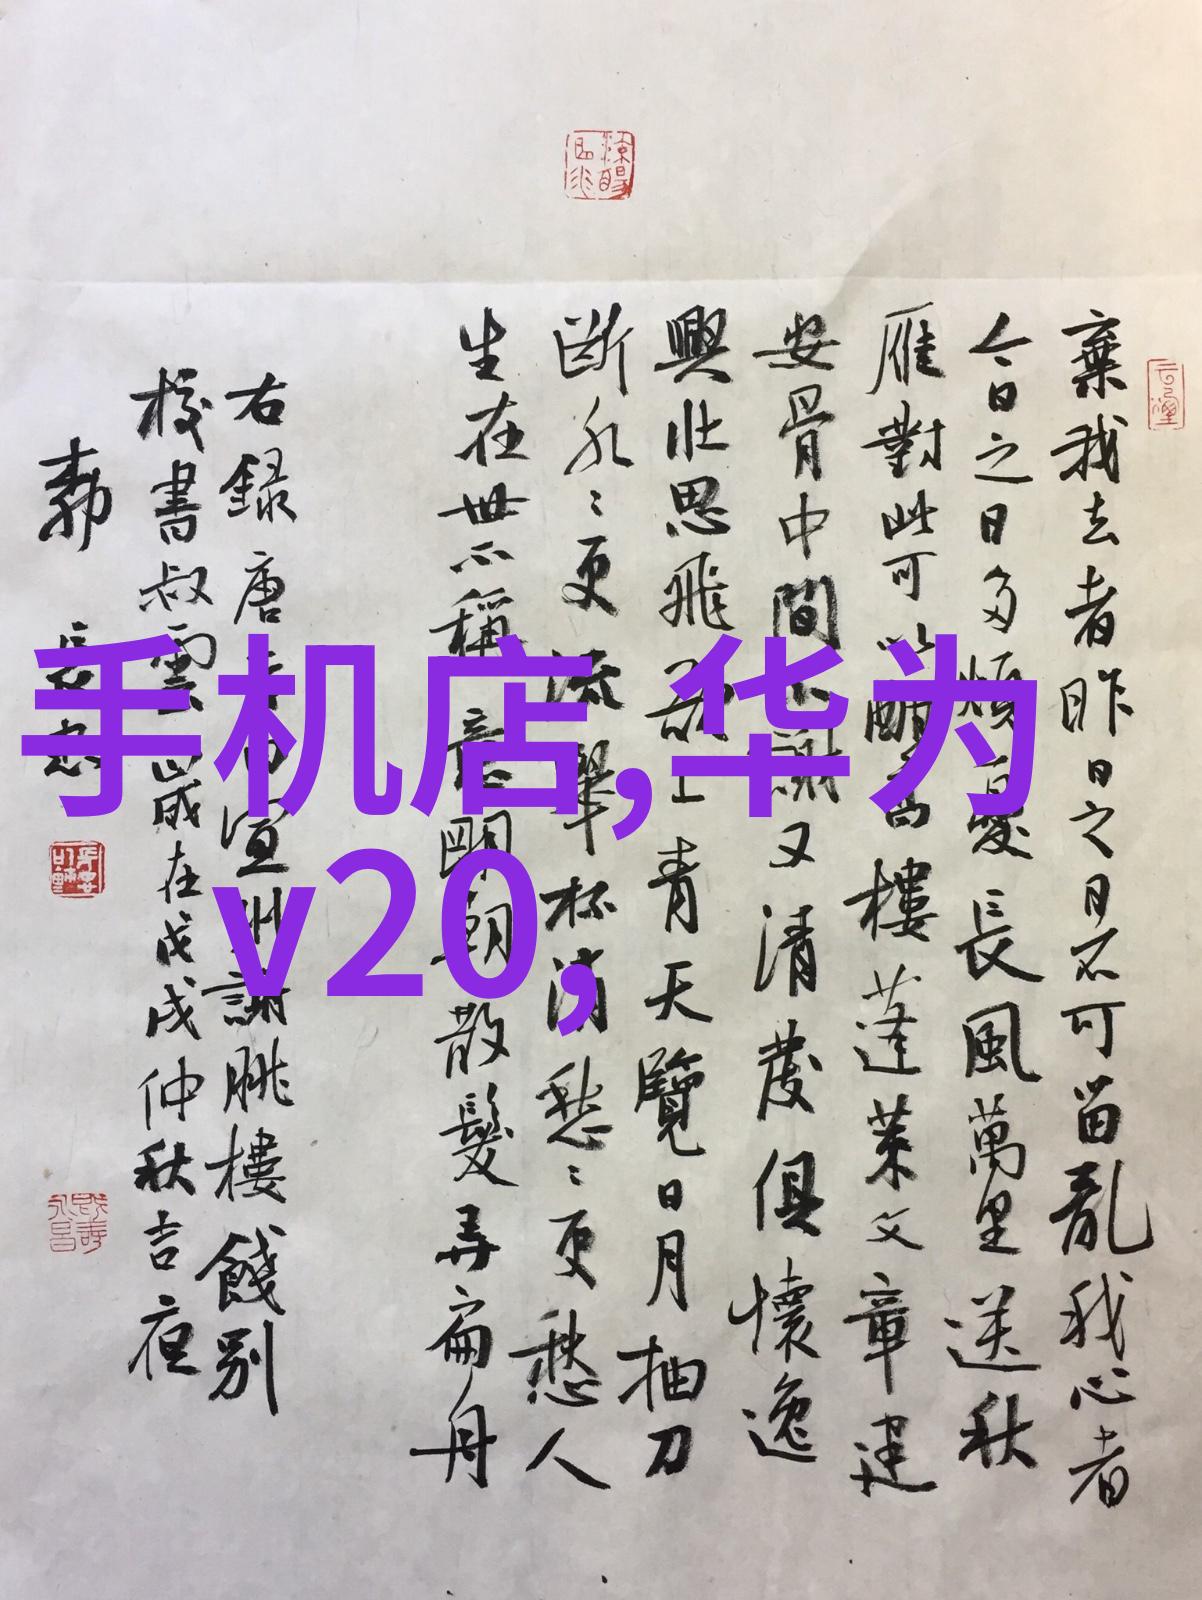 手机店,华为
v20,
棄我去者昨日之日不可留亂我心者
今日之日多煩憂長風萬里送秋
雁對此可以酣高樓蓬萊文章建
安骨中間小謝又清發俱懷逸
興壯思飛欲上青天覽日月抽刀
斷水〻更流舉杯消愁〻更愁人
生在世不稱意明朝散髮弄扁舟
右錄唐李白宣州謝朓樓餞別
校書叔雲歲在戊戌仲秋吉夜